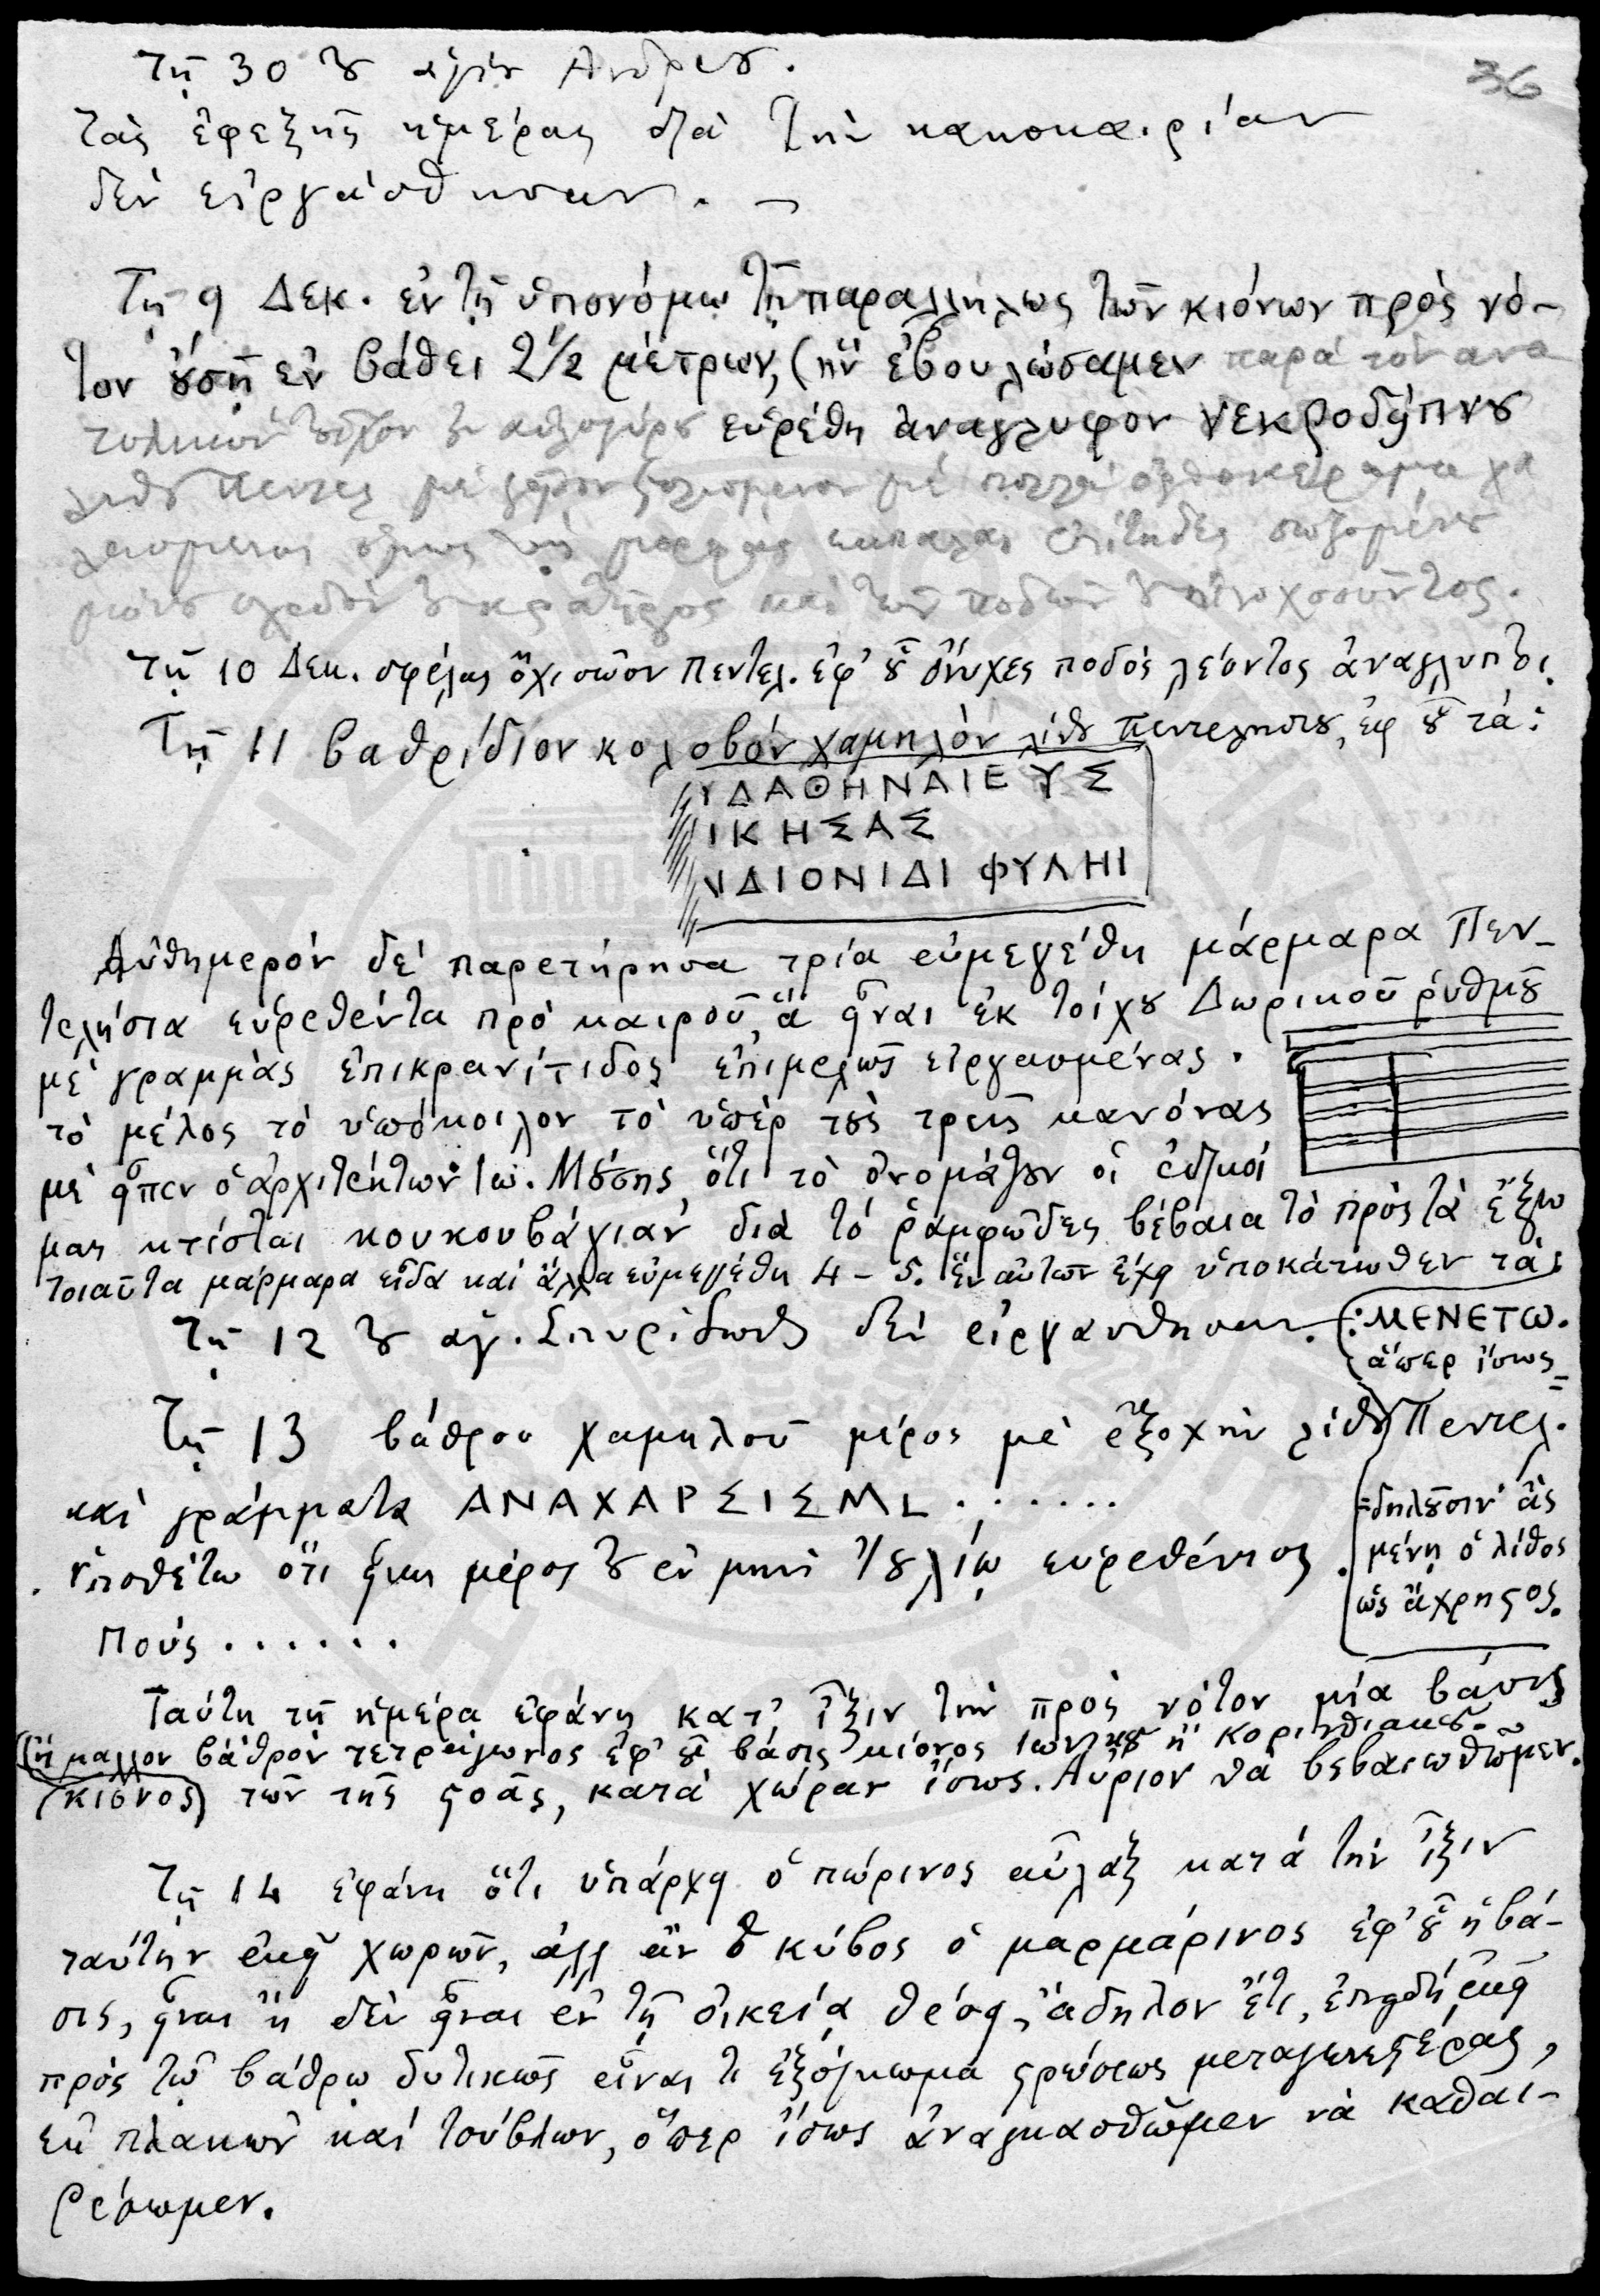 36
Τῇ 30 τοῦ ἁγίου Ἀνδρέου.
τὰς ἐφεξῆς ἡμέρας διὰ τὴν κακοκαιρίαν
δὲν εἰργάσθησαν. –
Τῇ 9 Δεκ. ἐν τῇ ὑπονόμῳ τῇ παραλλήλως τῶν κιόνων πρὸς νό-
τον οὔσῃ ἐν βάθει 2 1/2 μέτρων, (ἣν ἐβουλώσαμεν παρὰ τὸν ἀνα
τολικὸν τοῖχον τοῦ εὑρέθη ἀνάγλυφον νεκροδείπνου
λίθου Πεντελ με
ὅμως τὰς μορφὰς ἐπίτηδες σωζομένου
μόνου σχεδὸν τοῦ κρατῆρος καὶ τῶν ποδῶν τοῦ οἰνοχοοῦντος.
τῇ 10 Δεκ. σφέλας ὄχι σῶον Πεντελ. ἐφ' οὗ ὄνυχες ποδὸς λέοντος ἀναγλύπτου.
Τῇ 11 βαθρίδιον κολοβὸν χαμηλὸν λίθου Πεντελησίου, ἐφ οὗ τά:
ΥΔΑΘΗΝΑΙΕΥΣ
ΙΚΗΣΑΣ
ΝΔΙΟΝΙΔΙ ΦΥΛΗΙ
Αὐθημερὸν δὲ παρετήρησα τρία εὐμεγέθη μάρμαρα Πεν-
τελήσια εὑρεθέντα πρὸ καιροῦ, ἃ εἶναι ἐκ τοίχου Δωρικοῦ ῥυθμοῦ
μὲ γραμμὰς ἐπικρανίτιδος ἐπιμελῶς εἰργασμένας.
τὸ μέλος τὸ ὑπόκοιλον τὸ ὑπὲρ τοὺς τρεῖς κανόνας
μὲ εἶπεν ὁ ἀρχιτέκτων Ἰω. Μούσης, ὅτι τὸ ὀνομάζουν οἱ ἐδικοί
μας κτίσται κουκουβάγιαν διὰ τὸ ῥαμφῶδες βέβαια τὸ πρὸς τὰ ἔξω
τοιαῦτα μάρμαρα εἶδα καὶ ἄλλα εὐμεγέθη 4 – 5. ἓν αὐτῶν ἔχει ὑποκάτωθεν τάς
Τῇ 12 τοῦ ἁγ. Σπυρίδωνος δὲν εἰργάσθησαν.
: ΜΕΝΕΤΩ.
ἅπερ ἴσως =
Τῇ 13 βάθρου χαμηλοῦ μέρος μὲ ἐξοχὴν λίθου Πεντελ.
καὶ γράμματα ΑΝΑΧΑΡΣΙΣΜL . . . . . . .
ὑποθέτω ὅτι εἶναι μέρος τοῦ ἐν μηνὶ Ἰουλίῳ εὑρεθέντος.
=δηλοῦσιν ἂς
μένῃ ὁ λίθος
ὡς ἄχρηστος.
πούς . . . . . .
Ταύτῃ τῇ ἡμέρᾳ ἐφάνη κατ' ἶξιν τὴν πρὸς νότον μία βάσις
(ἢ μᾶλλον βάθρον τετράγωνος ἐφ' οὗ βάσις κίονος Ἰωνικοῦ ἢ κορινθιακοῦ.
(κίονος) τῶν τῆς στοᾶς, κατὰ χώραν ἴσως. Αὔριον θὰ βεβαιωθῶμεν.
Τῇ 14 ἐφάνη ὅτι ὑπάρχει ὁ πώρινος αὖλαξ κατὰ τὴν ἶξιν
ταύτην ἐκεῖ χωρῶν, ἀλλ ἂν ὁ κύβος ὁ μαρμάρινος ἐφ' οὗ ἡ βά-
σις, εἶναι ἢ δὲν εἶναι ἐν τῇ οἰκείᾳ θέσει, ἄδηλον ἔτι, ἐπειδὴ ἐκεῖ
πρὸς τῷ βάθρῳ δυτικῶς εἶναι τι ἐξόγκωμα στρώσεως μεταγενεστέρας,
ἐκ πλακῶν καὶ τούβλων, ὅπερ ἴσως ἀναγκασθῶμεν νὰ καθαι-
ρέσωμεν.